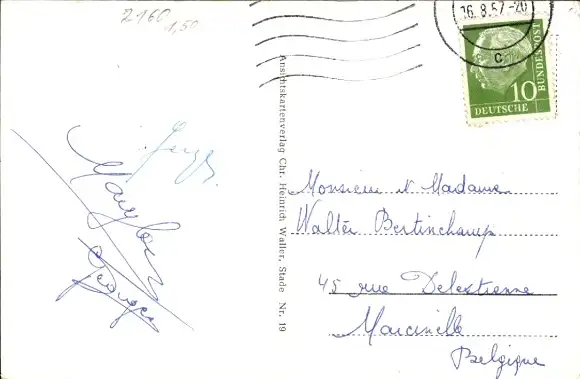 2160
1,50
16.8.57-20
c
10
DEUTSCHE
BUNDESPOST
Ansichtskartenverlag Chr. Heinrich Waller, Stade Nr. 19
Georges
Monsieur et Madame
Walter Bertinchamp
45 rue Delestienne
Marcinelle
Belgique